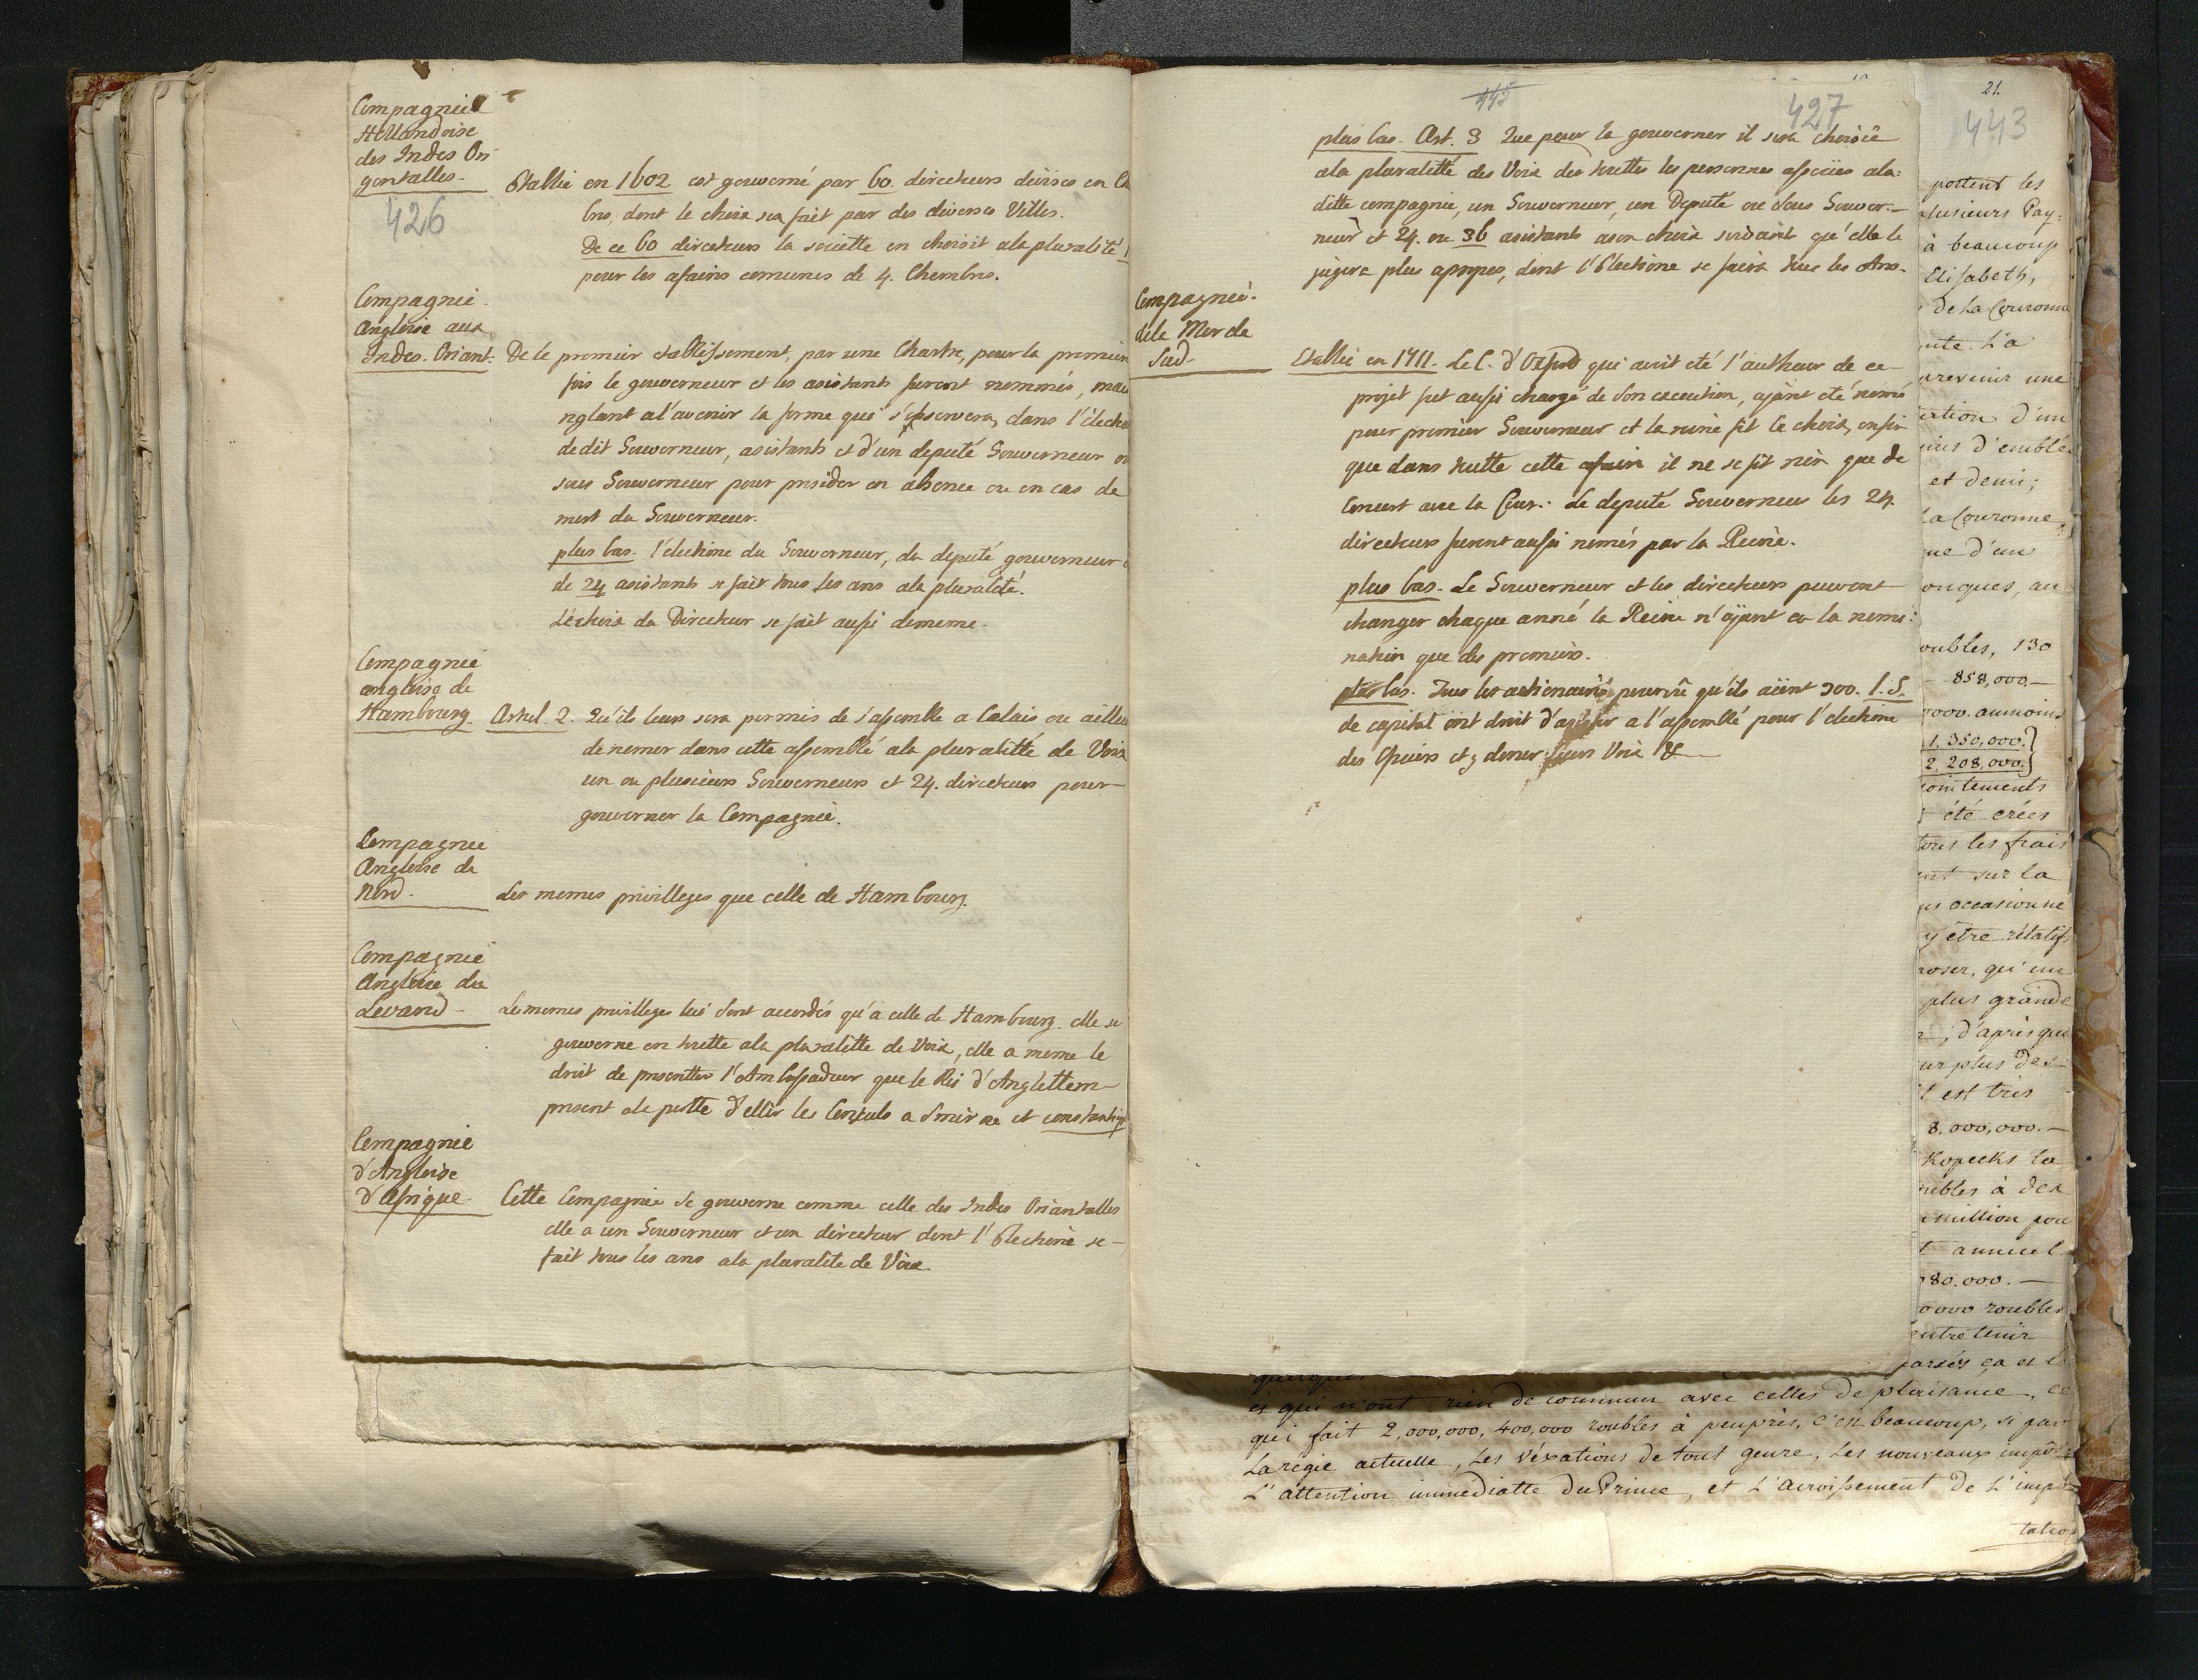 Compagnie
Hollandoise
des Indes Ori
gentalles.
426
Etablie en 1602 est gouverné par 60 directeurs divises en Ch
bres, dont le choix sera fait par des diverses Villes.
De ce 60 directeurs la societte en choisit ala pluralité
pour les afaires comunes de 4. Chembres.
Compagnie
Angloise aux
Indes. Oriant.
De le premier etablissement, par une Chartre, pour la premier
fois le gouverneur et les asistants feront nommés, mais
reglant al'avenir la forme qui s'observera, dans l'électio
dedit Gouverneur, asistants et d'un deputé Gouverneur ou
sous Gouverneur pour presider en absence ou en cas de
mort du Gouverneur.
plus bas. l'elections du Gouverneur, du deputé gouverneur
de 24 asistants se fait tous les ans ala pluralité.
Le choix du Directeur se fait aussi dememe.
Compagnie
angloise de
Hambourg.
Articl. 2. Qu'ils leurs sera permis de s'assemble a Calais ou ailleu
de nomer dans cette assemblé ala pluralitté de Voix
un ou plusieurs Gouverneurs et 24. directeurs pour
gouverner la Compagnie.
Compagnie
Angloise du
Nord.
Les memes privilleges que celle de Hambourg.
Compagnie
Angloise du
Levand
Le memes privilleges lui sont accordés qu'a celle de Hambourg. elle se
gouverne en toutte ala pluralitte de Voix, elle a meme le
droit de presentter l'Ambassadeur que le Roi d'Anglettem
present ala portte d'ellir les Consuls a Smirne et constantinp
Compagnie
d'Angloise
d'Afrique
Cette Compagnie se gouverne comme celle des Indes Oriantalles
elle a un Gouverneur et un directeur dont l'Elections se
fait tous les ans ala pluralite de Voix
445
427
plus bas. Art. 3 Que pour la gouverner il sera choisie
ala pluralitté des Voix des touttes les personnes associées ala
ditte compagnie, un Gouverneur, un Deputé ou sous Gouver-
neur et 24. ou 36 asistants a son choix suivant qu'elle le
jugera plus apropos, dont l'Elections se faira tous les Ans.
Compagnie
dela Mer du
Sud
Etablie en 1711. Le C. d'Oxford qui avoit eté l'autheur de ce
projet fut aussi chargé de son execution, ajant eté nomé
pour premier Gouverneur et la reine fit le choix, enfin
que dans toutte cette afaire il ne se fit rien que de
Concert avec la Cour. Le deputé Gouverneur les 24.
directeurs furent aussi només par la Reine.
plus bas. Le Gouverneur et les directeurs peuvent
changer chaque anné la Reine n'ajant eu la nomi:
nation que des premiers.
plus bas. Tous les actionaires pourvu qu'ils aient 300. l. S.
de capital ont droit d'asister a l'assemblé pour l'elections
des Oficiers et y doner leurs Voix &
21.
443
pottent les
plusieurs Pay:
à beaucoup
Elisabeth,
de La Couronne
L'a
prevenir une
d'un
d'emblé
et demi;
la Couronne
ne d'un
onques, au
oubles, 130
858,000.—
000. aumoins
1,350,000.
2,208,000.
été crées
tous les frais
ent sur la
us occasionne
y etre rélatif
poser, qu'une
plus grande
d'après que
ur plus des
l est très
8,000,000.—
Kopecks la
oubles à dex
million pou
t annuel
80.000.—
0000 roubles
entretenir
parsés ça et l
quelques
et qui n'ont rien de commun avec celles de plaisance, ce
qui fait 2,000,000, 400,000 roubles à peuprès, c'en beaucoup, si par
La régie actuelle, Les véxations de tout genre, Les nouveaux impôts
L'attention immédiatte du Prince, et L'acroissement de L'impo
tatio